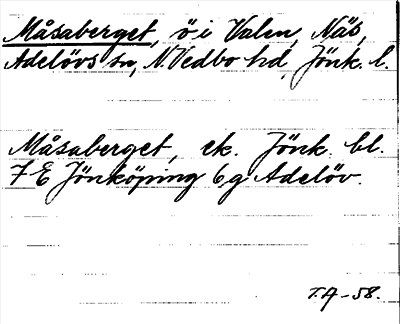 Måsaberget, ö i Valen, Näs,
Adelövs sn, N. Vedbo hd, Jönk. l.
Måsaberget, ek. Jönk. bl.
7 E Jönköping 6 g Adelöv.
T.A-58.